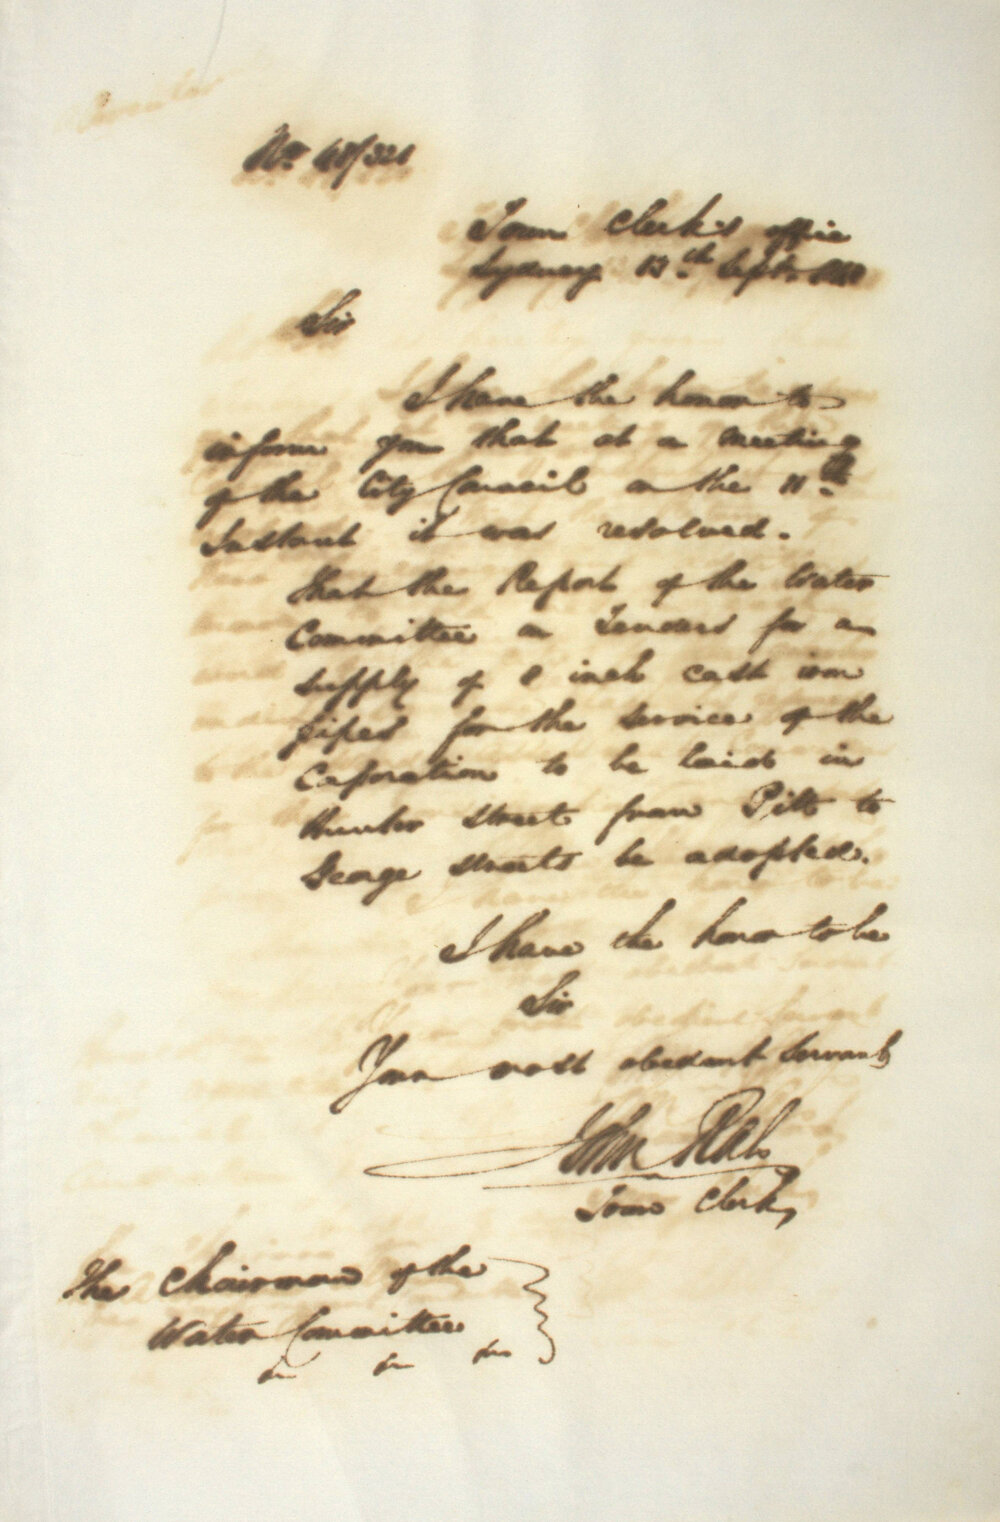 No 48/321
Town Clerk's office
Sydney 13th Septr 1848
Sir
I have the honor to
inform you that at a meeting
of the City Council on the 11th
Instant it was resolved.
That the Report of the Water
Committee on Tenders for a
supply of 8 inch cast iron
pipes for the service of the
Corporation to be laid in
Hunter street from Pitt to
George streets be adopted.
I have the honor to be
Sir
Your most obedient Servant
John Rae
Town Clerk,
The Chairman of the
Water Committee